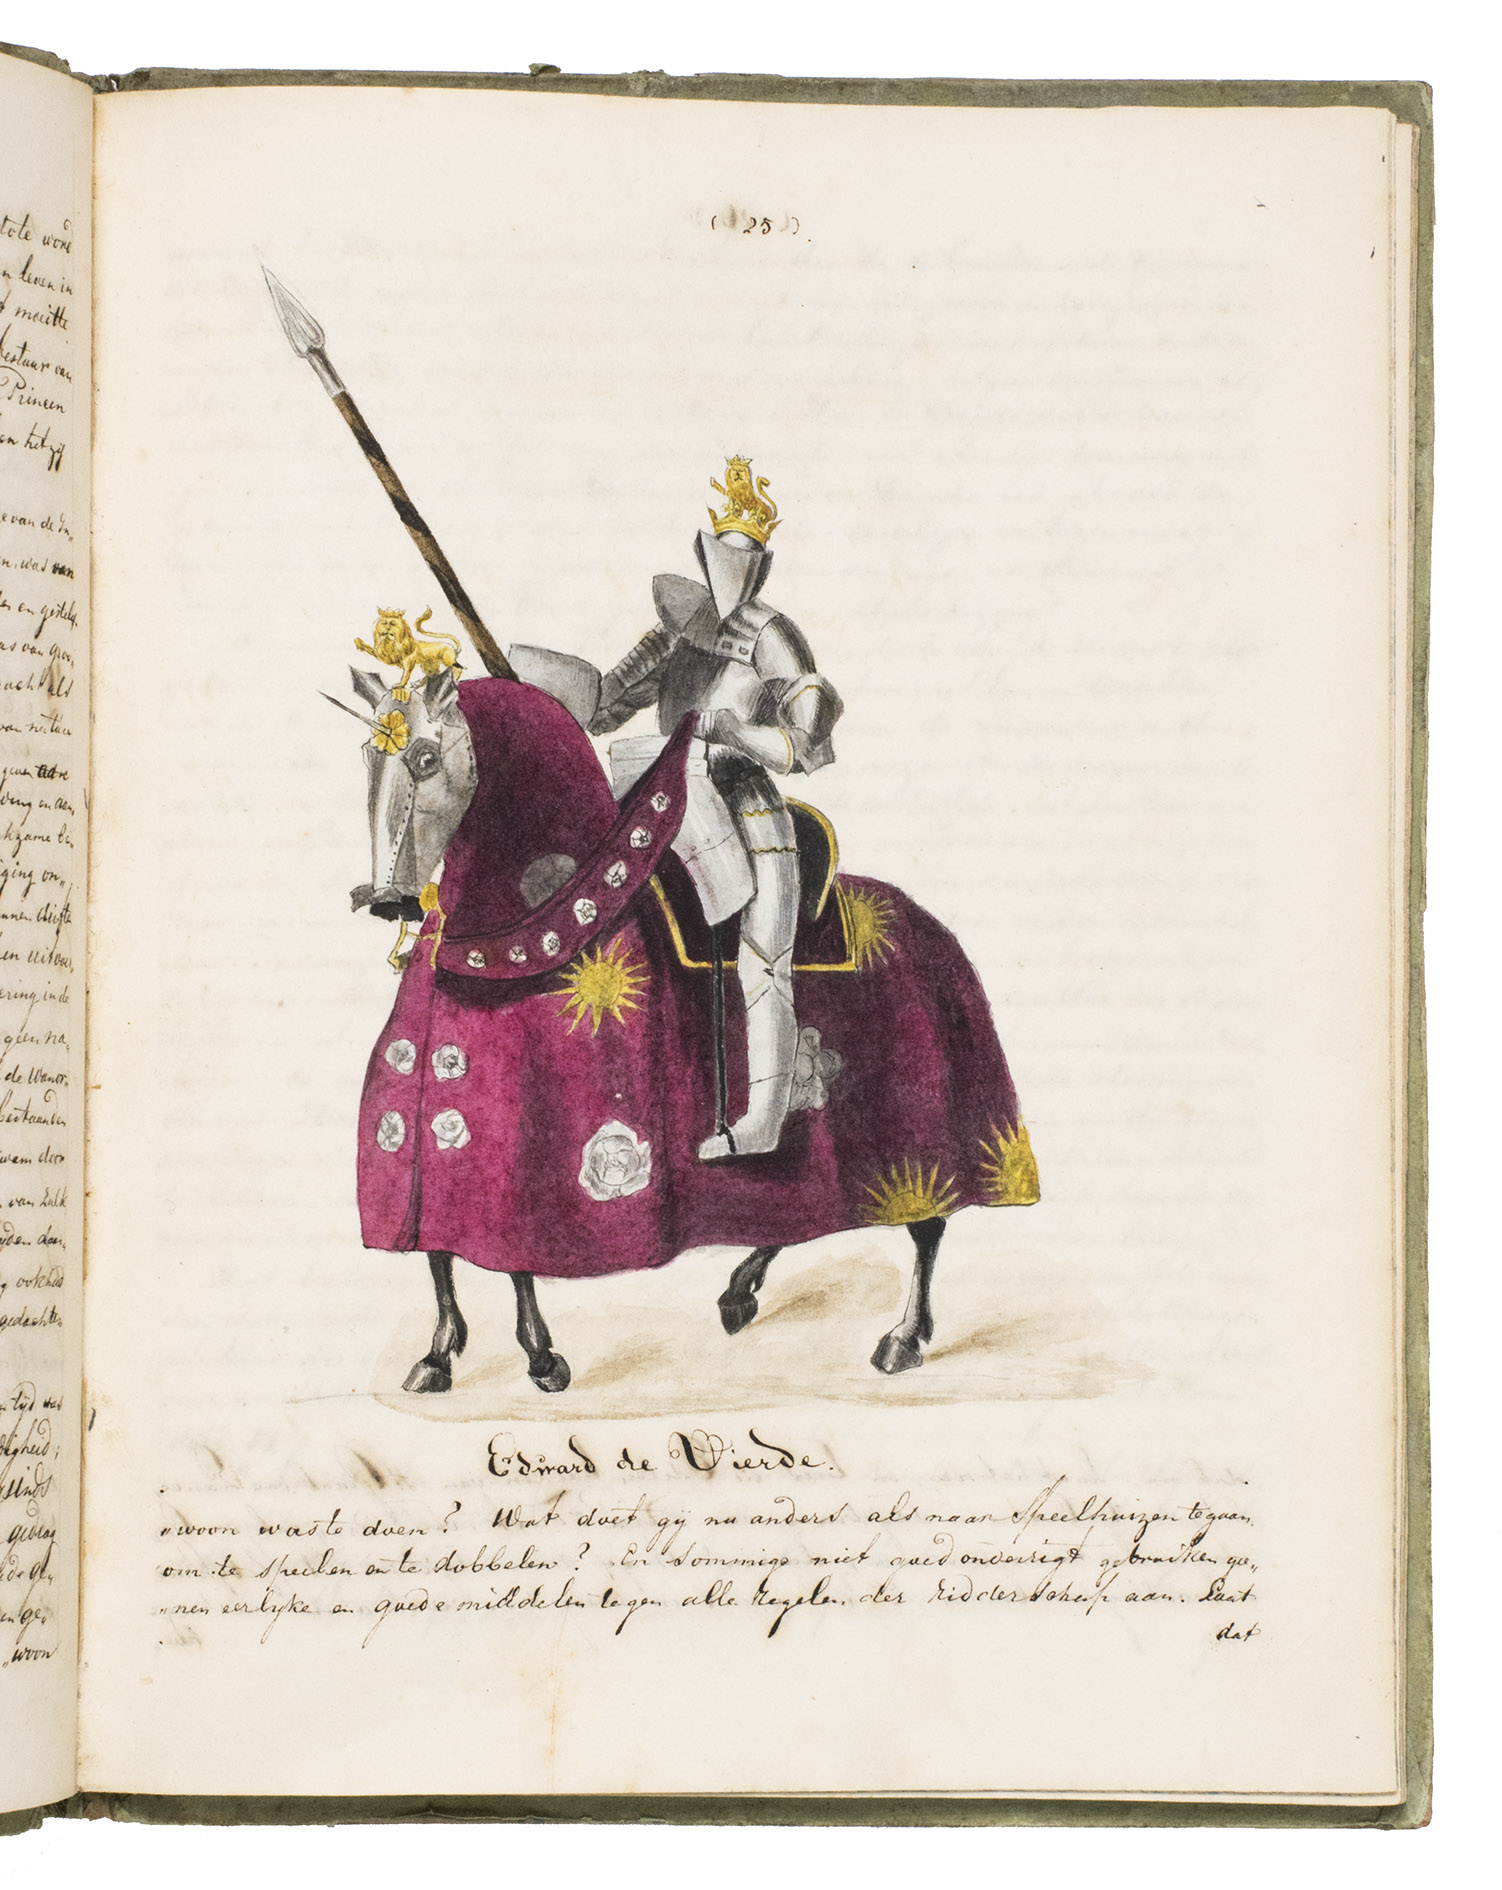 tote word
n leven in
t moeitte
bestuur van
Princen
en het zij
e van de In„
n, was van
der en gestelt.
as van groo„
van
geven
ging on„
en uitvoe„
ering in de
geen na„
de wanor„
bestaanden
kwam door
van zulk
ijden dan„
ook had
gedachten
tijd was
digheid;
sinds
gedrag
en ge„
„woon
( 25 ).
Edward de Vierde.
„woon waste doen? Wat doet gij nu anders als naar Speelhuizen te gaan.
om te speelen en te dobbelen? En sommige niet goed onderrigt gebruiken gee„
„nen eerlyke en goede middelen tegen alle regelen der ridderschap aan. Laat
dat